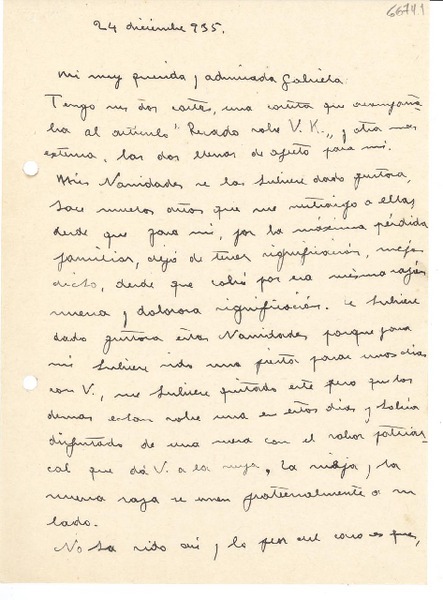 6674.1
24 diciembre 935.
Mi muy querida y admirada Gabriela:
Tengo sus dos cartas, una cortita que acompaña
ba al artículo "Recado sobre V. K.", y otra mas
extensa, las dos llenas de afecto para mi.
Mis Navidades se las hubiera dado gustosa,
hace muchos años que me sustraigo a ellas,
desde que para mi, por la máxima pérdida
familiar, dejó de tener significación, mejor
dicho, desde que cobró por esa misma razón
nueva y dolorosa significación. Le hubiera
dado gustosa estas Navidades porque para
mi hubiera sido una fiesta pasar unos dias
con V., me hubiera quitado este peso que los
demas echan sobre una en estos dias y habria
disfrutado de una mesa con el sabor patriar-
cal que dá V. a la suya. La vieja y la
nueva raza se unen fraternalmente a su
lado.
No ha sido asi, y lo peor del caso es que,